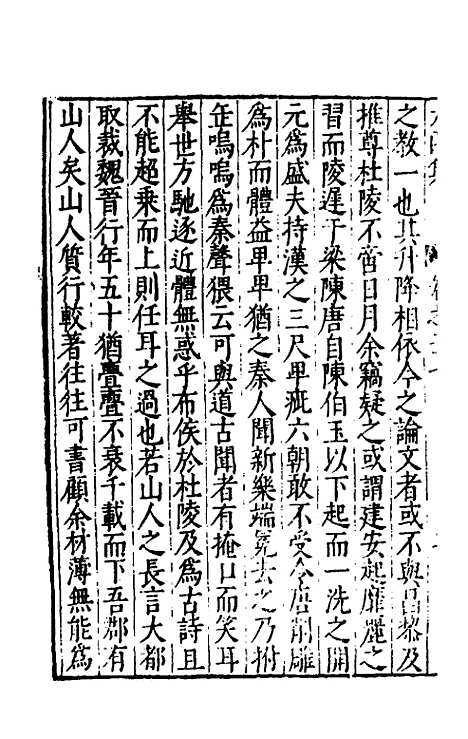 之教一也其升降相依今之論文者或不與昌黎及
推尊杜陵不啻日月余竊疑之或謂建安起靡麗之
習而陵遲于梁陳唐自陳伯玉以下起而一洗之開
元為盛夫持漢之三尺卑疵六朝敢不受令唐削雕
為朴而體益卑卑猶之秦人聞新樂端冕去之乃拊
缶嗚嗚為秦聲猥云可與道古聞者有掩口而笑耳
舉世方馳逐近體無惑乎布侯於杜陵及為古詩且
不能超乘而上則任耳之過也若山人之長言大都
取裁魏晉行年五十猶亹亹不衰千載而下吾郡有
山人矣山人質行較著往往可書顧余材薄無能為